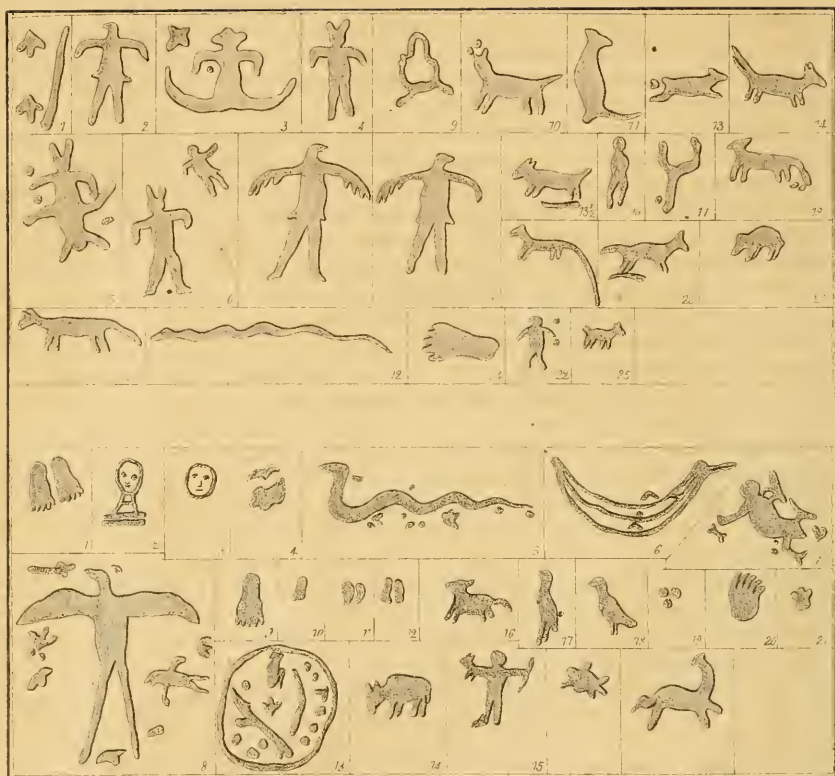 1 2 3 4 9 10 11 13 14
13½ 11 19
5 6
12 22 25
1 2 3 4 5 6
9 10 11 12 16 17 18 19 20 21
8 13 14 15